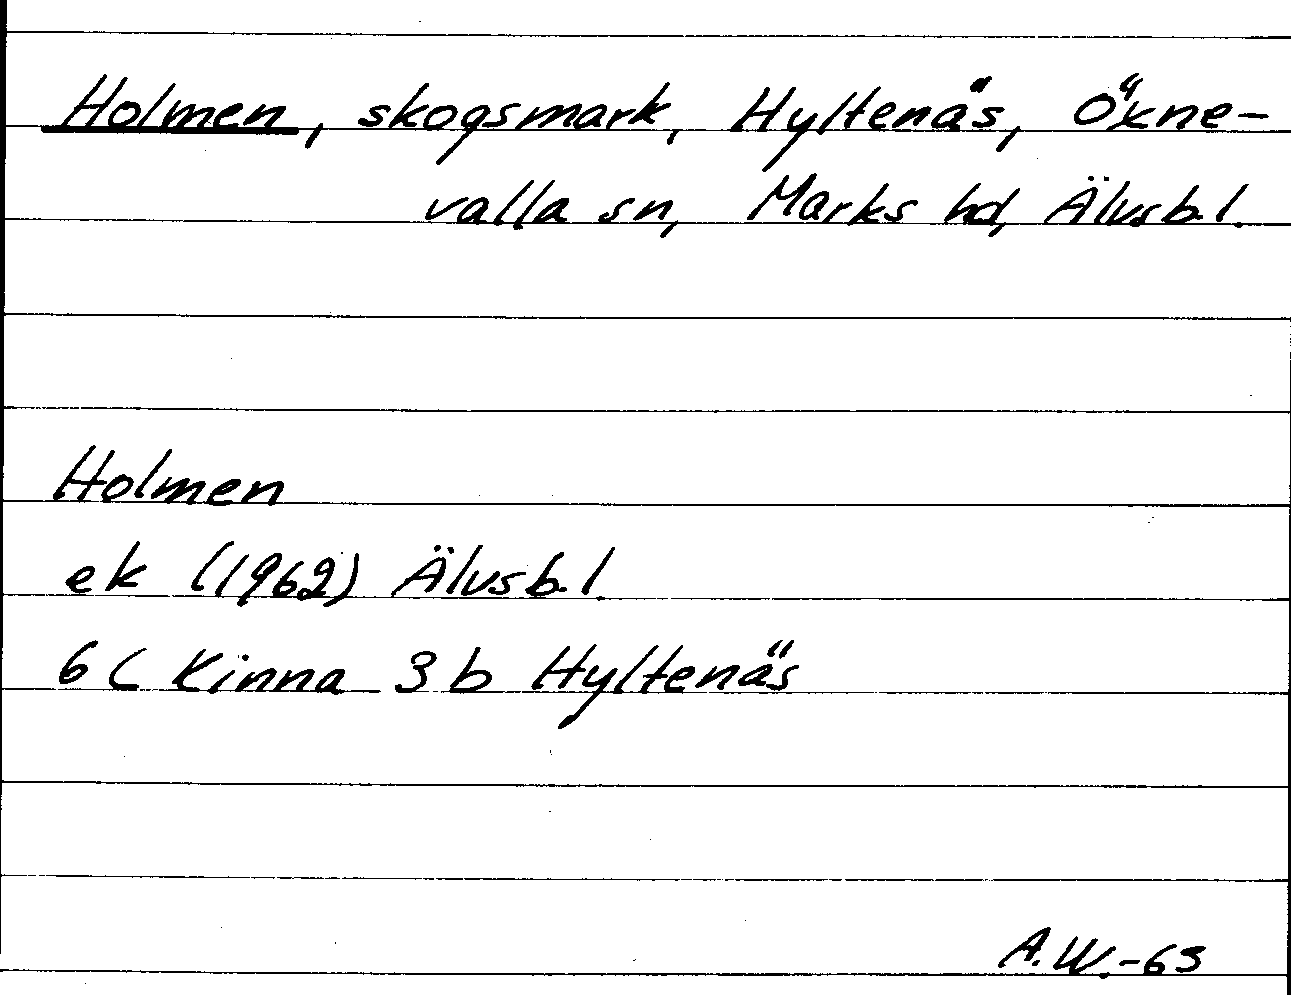 Holmen, skogsmark, Hyltenäs, Öxne-
valla sn, Marks hd, Älvsb.l.
Holmen
ek (1962) Älvsb.l.
6 C Kinna 3 b Hyltenäs
A.W.-63